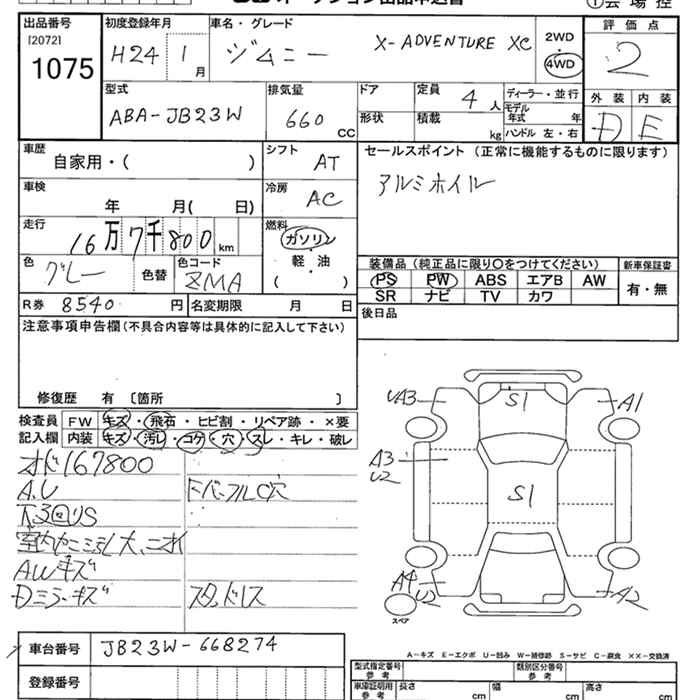 出品番号
[2072]
1075
初度登録年月
H24 1月
車名・グレード
ジムニー X-ADVENTURE XC
2WD
4WD
評価点
2
外装 内装
D E
型式
ABA-JB23W
排気量
660 CC
ドア
形状
定員
4人
積載
kg
ディーラー・並行
モデル年式 年
ハンドル 左・右
車歴
自家用・( )
シフト
AT
セールスポイント (正常に機能するものに限ります)
アルミホイル
車検
年 月( 日)
冷房
AC
走行
16万7千800km
燃料
ガソリン
軽・油
( )
色
グレー
色替
色コード
ZMA
装備品 (純正品に限り○をつけてください)
新車保証書
PS PW ABS エアB AW
有・無
SR ナビ TV カワ
R券 8540 円
名変期限 月 日
後日品
注意事項申告欄(不具合内容等は具体的に記入して下さい)
修復歴 有 〔箇所 〕
検査員 FW キズ・飛石・ヒビ割・リペア跡・×要
記入欄 内装 キズ・汚レ・コゲ・穴・スレ・キレ・破レ
オド167800
A.U
FバンパーフルC穴
下回りS
AWキズ
Dミラーキズ
スタッドレス
UA3
S1
A1
A3
U2
S1
A4
U2
A2
スペア
車台番号 JB23W-668274
登録番号
A-キズ E-エクボ U-凹み W-補修跡 S-サビ C-腐食 XX-交換済
型式指定番号
参考
類別区分番号
参考
車庫証明用
参考
長さ cm
幅 cm
高さ cm